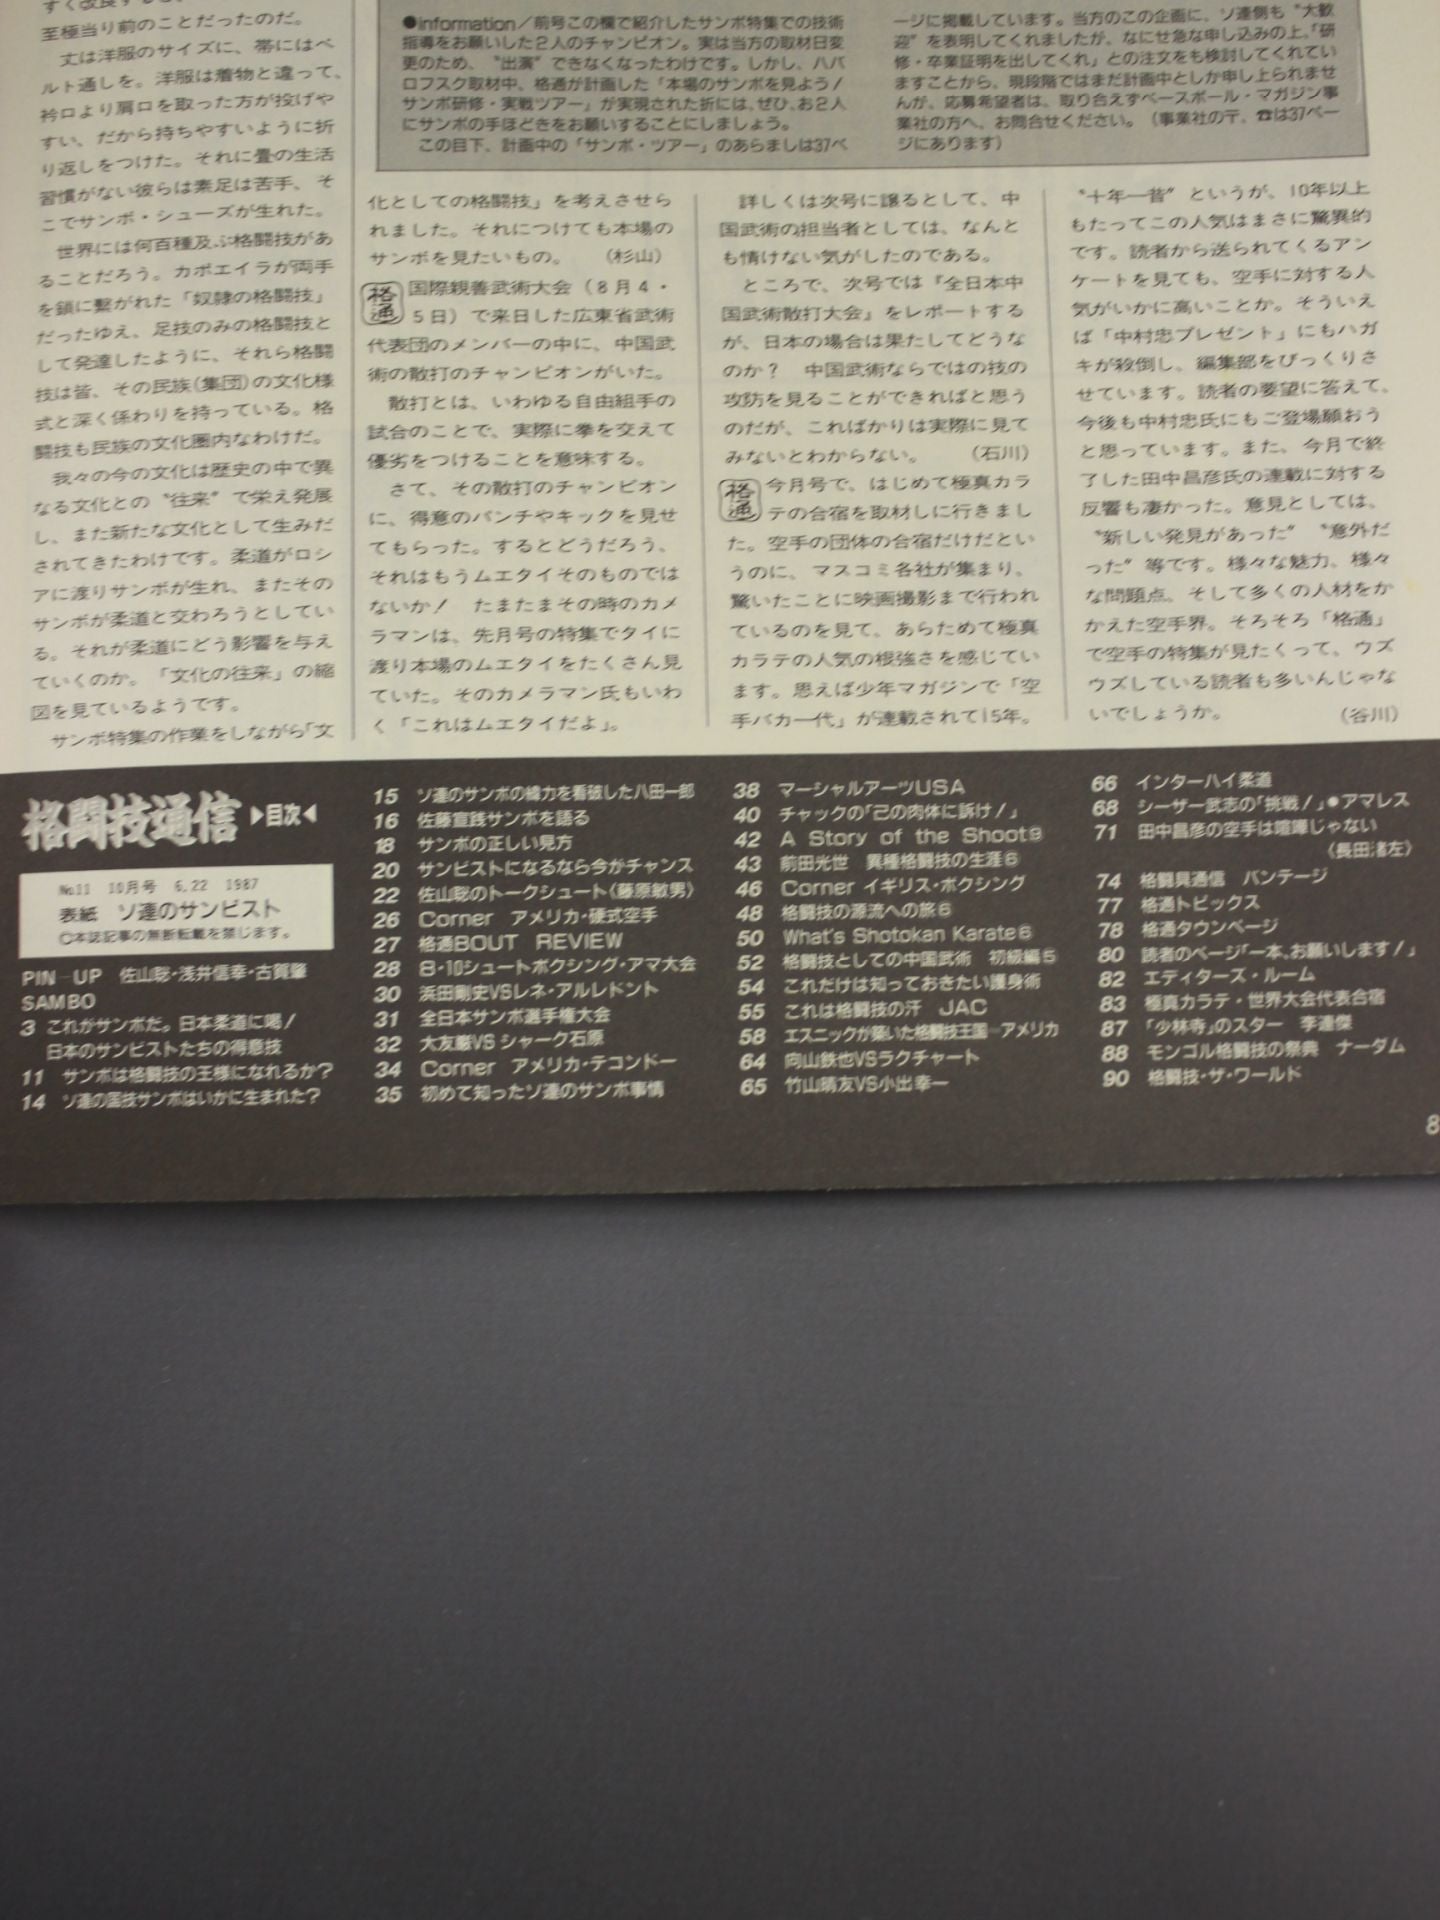 至極当り前のことだったのだ。
丈は洋服のサイズに、帯にはベ
ルト通しを。洋服は着物と違って、
衿口より肩口を取った方が投げや
すい、だから持ちやすいように折
り返しをつけた。それに畳の生活
習慣がない彼らは素足は苦手、そ
こでサンボ・シューズが生れた。
世界には何百種及ぶ格闘技があ
ることだろう。カポエイラが両手
を鎖に繋がれた「奴隷の格闘技」
だったゆえ、足技のみの格闘技と
して発達したように、それら格闘
技は皆、その民族(集団)の文化様
式と深く係わりを持っている。格
闘技も民族の文化圏内なわけだ。
我々の今の文化は歴史の中で異
なる文化との〝往来〟で栄え発展
し、また新たな文化として生みだ
されてきたわけです。柔道がロシ
アに渡りサンボが生れ、またその
サンボが柔道と交わろうとしてい
る。それが柔道にどう影響を与え
ていくのか。「文化の往来」の縮
図を見ているようです。
サンボ特集の作業をしながら「文
●information／前号この欄で紹介したサンボ特集での技術
指導をお願いした2人のチャンピオン。実は当方の取材日変
更のため、〝出演〟できなくなったわけです。しかし、ハバ
ロフスク取材中、格通が計画した「本場のサンボを見よう！
サンボ研修・実戦ツアー」が実現された折には、ぜひ、お2人
にサンボの手ほどきをお願いすることにしましょう。
この目下、計画中の「サンボ・ツアー」のあらましは37ペ
ージに掲載しています。当方のこの企画に、ソ連側も〝大歓
迎〟を表明してくれましたが、なにせ急な申し込みの上、「研
修・卒業証明を出してくれ」との注文をも検討してくれてい
ますことから、現段階ではまだ計画中としか申し上られませ
んが、応募希望者は、取り合えずベースボール・マガジン事
業社の方へ、お問合せください。（事業社の〒、☎は37ペー
ジにあります）
化としての格闘技」を考えさせら
れました。それにつけても本場の
サンボを見たいもの。（杉山）
格通 国際親善武術大会（8月4・
5日）で来日した広東省武術
代表団のメンバーの中に、中国武
術の散打のチャンピオンがいた。
散打とは、いわゆる自由組手の
試合のことで、実際に拳を交えて
優劣をつけることを意味する。
さて、その散打のチャンピオン
に、得意のパンチやキックを見せ
てもらった。するとどうだろう、
それはもうムエタイそのものでは
ないか！　たまたまその時のカメ
ラマンは、先月号の特集でタイに
渡り本場のムエタイをたくさん見
ていた。そのカメラマン氏もいわ
く「これはムエタイだよ」。
詳しくは次号に譲るとして、中
国武術の担当者としては、なんと
も情けない気がしたのである。
ところで、次号では『全日本中
国武術散打大会』をレポートする
が、日本の場合は果たしてどうな
のか？　中国武術ならではの技の
攻防を見ることができればと思う
のだが、こればかりは実際に見て
みないとわからない。（石川）
格通 今月号で、はじめて極真カラ
テの合宿を取材しに行きまし
た。空手の団体の合宿だけだとい
うのに、マスコミ各社が集まり、
驚いたことに映画撮影まで行われ
ているのを見て、あらためて極真
カラテの人気の根強さを感じてい
ます。思えば少年マガジンで「空
手バカ一代」が連載されて15年。
〝十年一昔〟というが、10年以上
もたってこの人気はまさに驚異的
です。読者から送られてくるアン
ケートを見ても、空手に対する人
気がいかに高いことか。そういえ
ば「中村忠プレゼント」にもハガ
キが殺倒し、編集部をびっくりさ
せています。読者の要望に答えて、
今後も中村忠氏にもご登場願おう
と思っています。また、今月で終
了した田中昌彦氏の連載に対する
反響も凄かった。意見としては、
〝新しい発見があった〟〝意外だ
った〟等です。様々な魅力、様々
な問題点、そして多くの人材をか
かえた空手界。そろそろ「格通」
で空手の特集が見たくって、ウズ
ウズしている読者も多いんじゃな
いでしょうか。（谷川）
格闘技通信 ▶目次◀
No11　10月号　6, 22　1987
表紙　ソ連のサンビスト
©本誌記事の無断転載を禁じます。
PIN－UP　佐山聡・浅井信幸・古賀肇
SAMBO
3 これがサンボだ。日本柔道に喝！
日本のサンビストたちの得意技
11 サンボは格闘技の王様になれるか？
14 ソ連の国技サンボはいかに生まれた？
15 ソ連のサンボの威力を看破した八田一郎
16 佐藤宣践サンボを語る
18 サンボの正しい見方
20 サンビストになるなら今がチャンス
22 佐山聡のトークシュート〈藤原敏男〉
26 Corner　アメリカ・硬式空手
27 格通BOUT　REVIEW
28 8・10シュートボクシング・アマ大会
30 浜田剛史VSレネ・アルレドンド
31 全日本サンボ選手権大会
32 大友厳VSシャーク石原
34 Corner　アメリカ・テコンドー
35 初めて知ったソ連のサンボ事情
38 マーシャルアーツUSA
40 チャックの「己の肉体に訴け！」
42 A Story of the Shoot⑨
43 前田光世　異種格闘技の生涯⑥
46 Corner イギリス・ボクシング
48 格闘技の源流への旅⑥
50 What's Shotokan Karate⑥
52 格闘技としての中国武術　初級編⑤
54 これだけは知っておきたい護身術
55 これは格闘技の汗　JAC
58 エスニックが築いた格闘技王国＝アメリカ
64 向山鉄也VSラクチャート
65 竹山晴友VS小出幸一
66 インターハイ柔道
68 シーザー武志の「挑戦！」●アマレス
71 田中昌彦の空手は喧嘩じゃない
〈長田渚左〉
74 格闘具通信　バンテージ
77 格通トピックス
78 格通タウンページ
80 読者のページ「一本、お願いします！」
82 エディターズ・ルーム
83 極真カラテ・世界大会代表合宿
87 「少林寺」のスター　李連傑
88 モンゴル格闘技の祭典　ナーダム
90 格闘技・ザ・ワールド
8